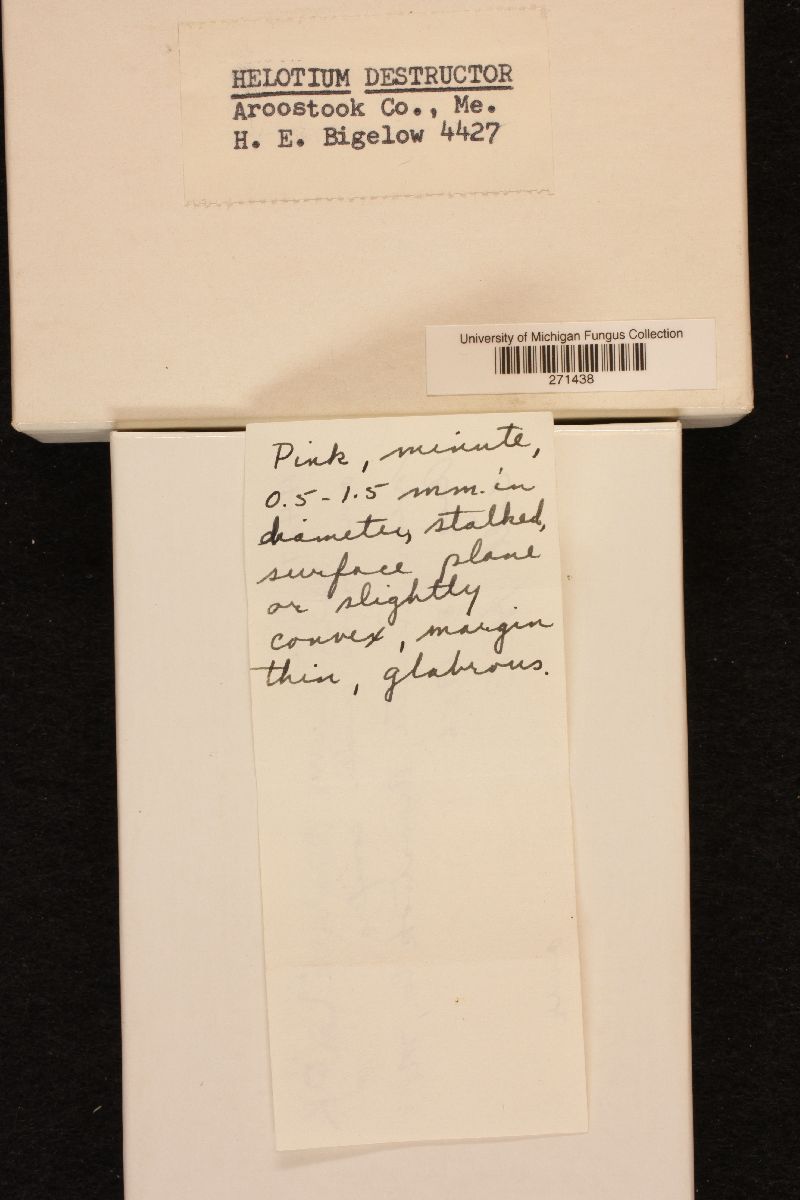 HELOTIUM DESTRUCTOR
Aroostook Co., Me.
H. E. Bigelow 4427
University of Michigan Fungus Collection
271438
Pink, minute,
0.5-1.5 mm. in
diameter, stalked,
surface plane
or slightly
convex, margin
thin, glabrous.